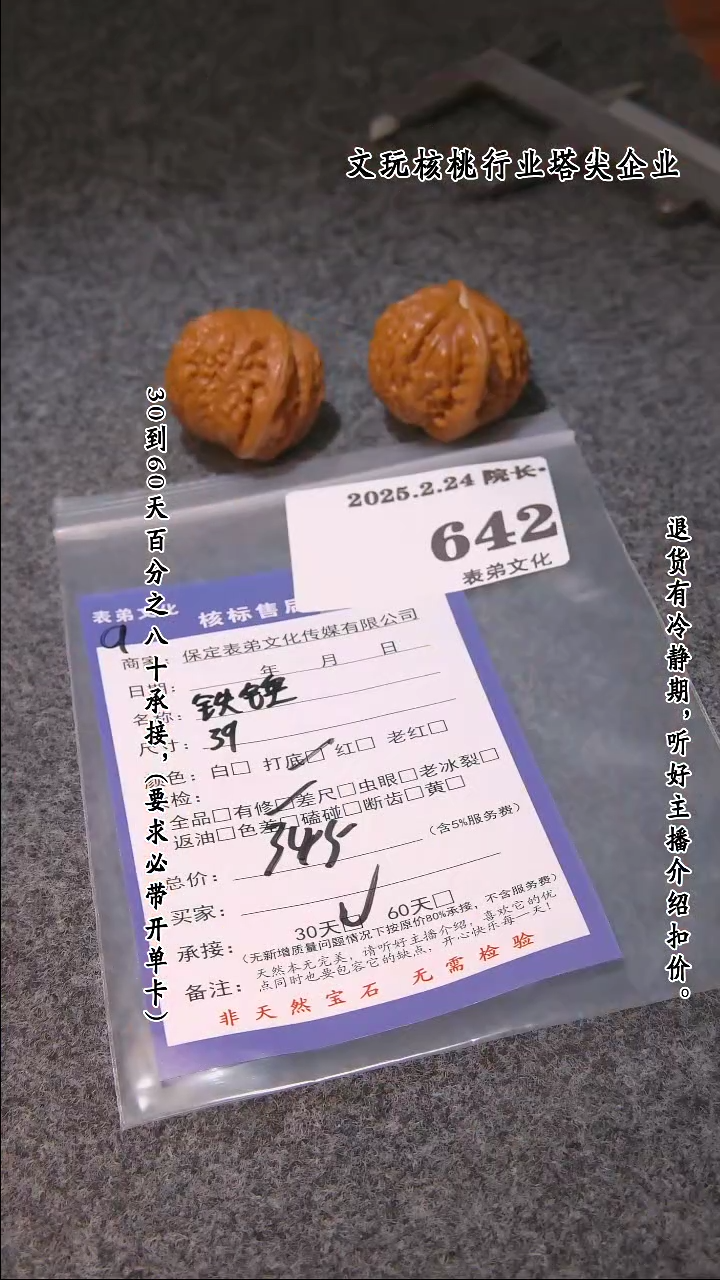 文玩核桃行业塔尖企业
30到60天百分之八十承接，(要求必带开单卡)
退货有冷静期，听好主播介绍扣价。
2025.2.24 院长
642
表弟文化
表弟文化 核标售后
9
商家：保定表弟文化传媒有限公司
日期： 年 月 日
名称：铁
尺寸：39
色：白□ 打底□ 红□ 老红□
检：
全品□有修□差尺□虫眼□老冰裂□
返油□色差□磕碰□断齿□黄□
总价：345 (含5%服务费)
买家：
承接：30天□ 60天□
(无新增质量问题情况下按原价80%承接，不含服务费)
备注：天然本无完美，请听好主播介绍，喜欢它的优
点同时也要包容它的缺点，开心快乐每一天！
非天然宝石 无需检验